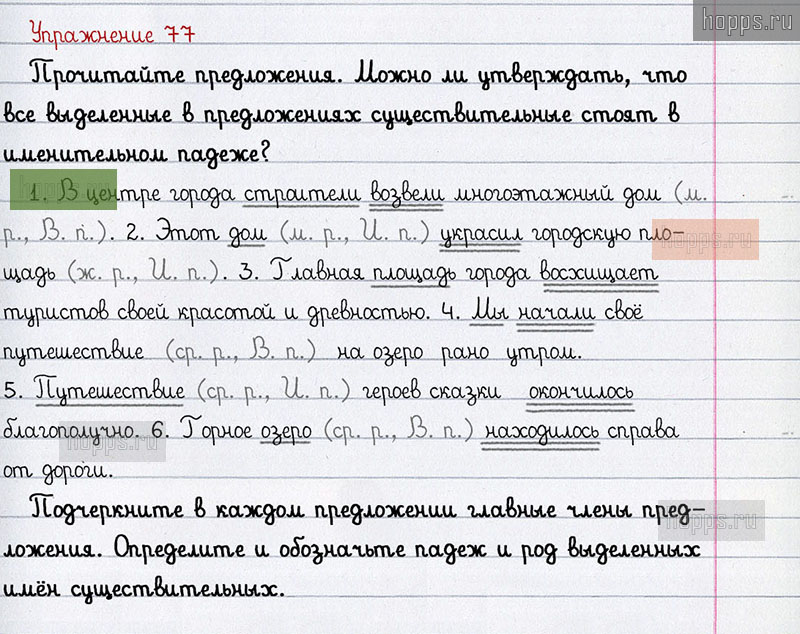 hopps.ru
Упражнение 77
Прочитайте предложения. Можно ли утверждать, что
все выделенные в предложениях существительные стоят в
именительном падеже?
1. В центре города строители возвели многоэтажный дом (м.
р., В. п.). 2. Этот дом (м. р., И. п.) украсил городскую пло-
щадь (ж. р., И. п.). 3. Главная площадь города восхищает
туристов своей красотой и древностью. 4. Мы начали своё
путешествие (ср. р., В. п.) на озеро рано утром.
5. Путешествие (ср. р., И. п.) героев сказки окончилось
благополучно. 6. Горное озеро (ср. р., В. п.) находилось справа
от дороги.
Подчеркните в каждом предложении главные члены пред-
ложения. Определите и обозначьте падеж и род выделенных
имён существительных.
hopps.ru